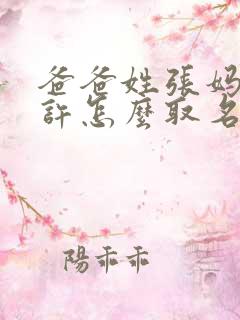 爸爸姓張媽
許怎麼取名
陽乖乖